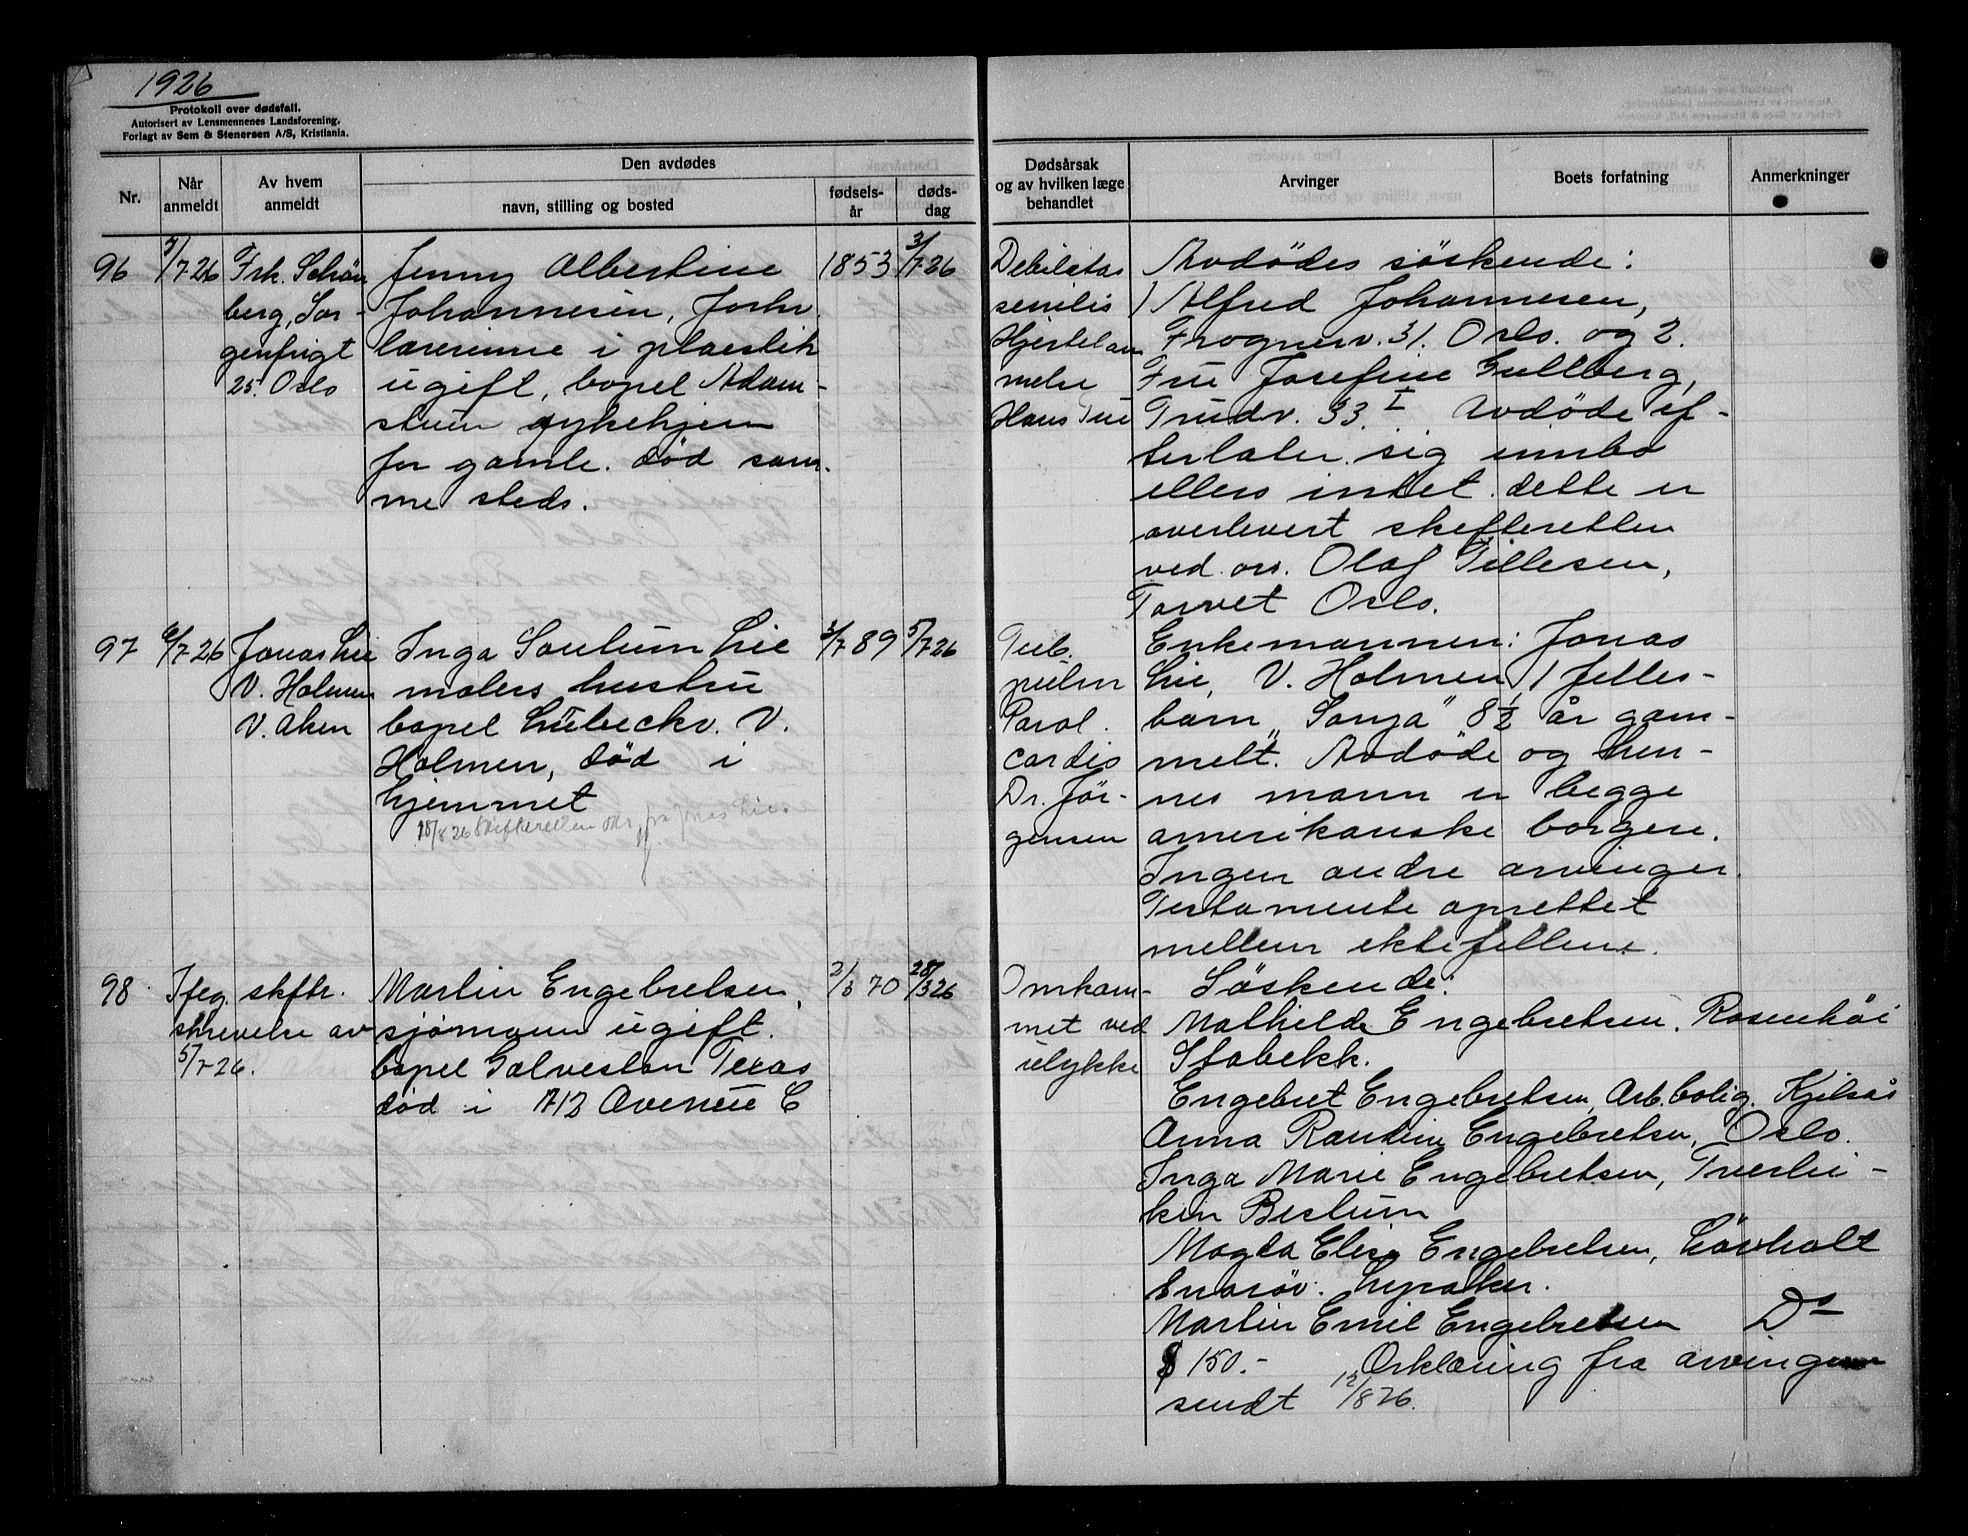 1926
Protokoll over dødsfall.
Autorisert av Lensmennenes Landsforening.
Forlagt av Sem & Stenersen A/S, Kristiania.
Nr.
Når anmeldt
Av hvem anmeldt
Den avdødes
navn, stilling og bosted
fødsels-år
døds-dag
Dødsårsak
og av hvilken læge
behandlet
Arvinger
Boets forfatning
Anmerkninger
96
5/7-26
Frk. Schön
berg, Sor-
genfrigt
25. Oslo
Jenny Albertine
Johannesen, Forhv.
lærerinne i plaestik
ugift, bopel Adam-
stuen sykehjem
for gamle. død sam-
me steds.
1853
3/7-26
Debilitas
senilis
Hjertelam
melse
Hans Tue
Avdødes søskende:
1/ Alfred Johannesen,
Frognerv. 31. Oslo. og 2.
Frue Josefine Gullberg,
Trudv. 33. I Avdøde ef-
terlater sig innbo
ellers intet. dette er
overlevert skifteretten
ved ors. Olaf Tillesen,
Torvet Oslo.
97
6/7-26
Jonas Lie
V. Holmen
V. Aker
Inga Sontum Lie
malers hustru
bopel Lübeckv. V.
Holmen, død i
hjemmet
18/8 26 Skifteretten fra Jonas Lie.
3/7 89
5/7-26
Tub.
pulm
Paral.
cordis
Dr. Jör-
gensen
Enkemannen: Jonas
Lie, V. Holmen 1 felles-
barn "Sonja" 8 1/2 år gam-
melt. Avdøde og hen-
nes mann er begge
amerikanske borgere.
Ingen andre arvinger.
Testamente oprettet
mellem ektefellene.
98
Ifeg. skftr.
skrivelse av
5/7-26.
Martin Engebretsen,
sjömann ugift.
bopel Galveston Texas
død i 712 Avenue C
2/3 70
28/3 26
Omkom-
met ved
ulykke
Söskende:
Mathilde Engebretsen, Rosenhöi
Stabekk.
Engebret Engebretsen, Arb.bolig. Kjelsås
Anna Randine Engebretsen, Oslo.
Inga Marie Engebretsen, Tverlie-
ken Bestum
Magda Elise Engebretsen, Lövholt
Snaröv. Lysaker.
Martin Emil Engebretsen Do
$ 150.- Erklæring fra arvingene
sendt 12/8 26.